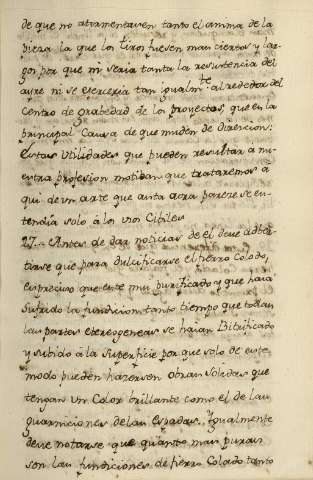 de que no atrmentasen tanto el anima de la
pieza la que los tiros fuesen mas ciertos y lar-
gos por que ni seria tanta la resistencia del
ayre ni se exercería tan igualm.te al rededor del
centro de grabedad de los proyectos, que es la
principal Causa de que muden de direccion:
Estas Utilidades que pueden resultar a nu-
estra profesion motiban que trataremos a-
qui de vn arte que asta aora parese se en-
tendia solo á los vsos Cibiles
27.. Antes de dar noticias de el deve adber-
tirse que para dulcificarse el fierro Colado,
es preciso que este mui purificado y que haia
sufrido la fundicion tanto tiempo que todas
las partes etereogeneas se haian Bitrificado
y subido á la Superficie por que solo de este
modo pueden hazersen obras solidas que
tengan vn Color brillante como el de las
guarniciones de las Espadas.. Ygualmente
deve notarse que quanto mas puras
son las fundiciones de fierro Colado tanto